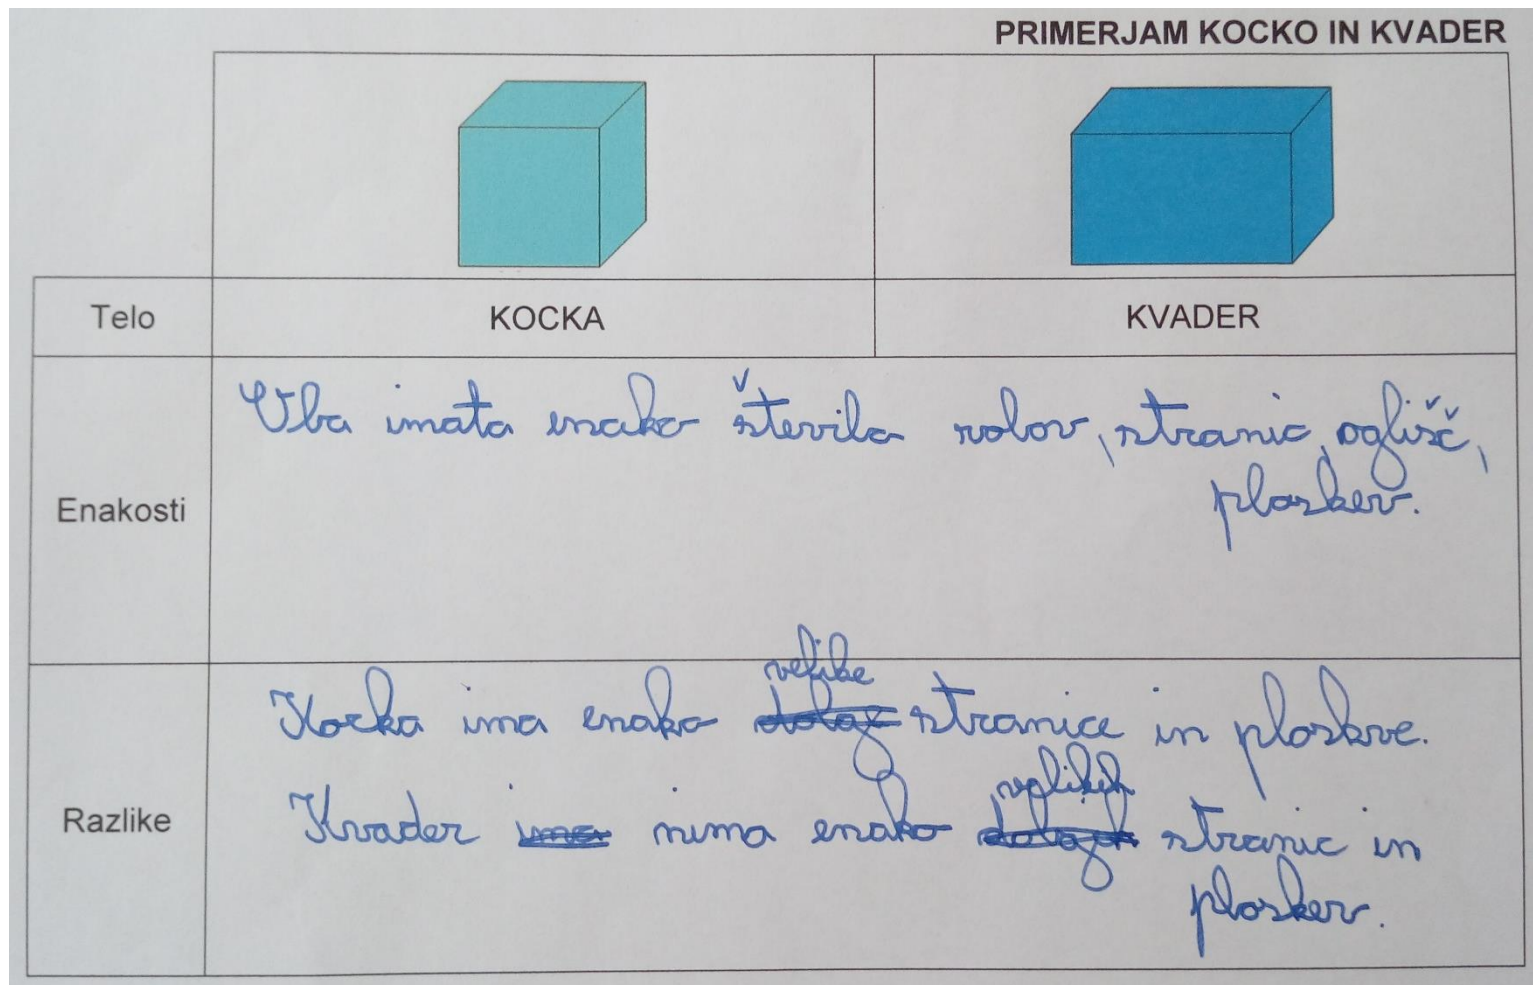 PRIMERJAM KOCKO IN KVADER
Telo KOCKA KVADER
Enakosti
Oba imata enako število robov, stranic, oglišč,
ploskev.
Razlike
velike
Kocka ima enako dolge stranice in ploskve.
velikih
Kvader ima nima enako dolgih stranic in
ploskev.